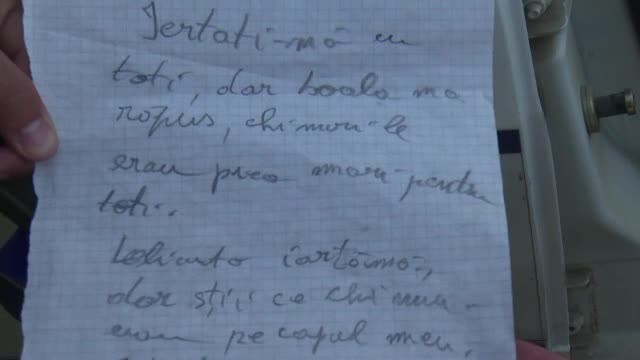 Iertați-mă cu
toți, dar boala m-a
răpus, chinuri-le
erau prea mari pentru
toți.
iartă-mă,
dar știi ce chinuri
erau pe capul meu,